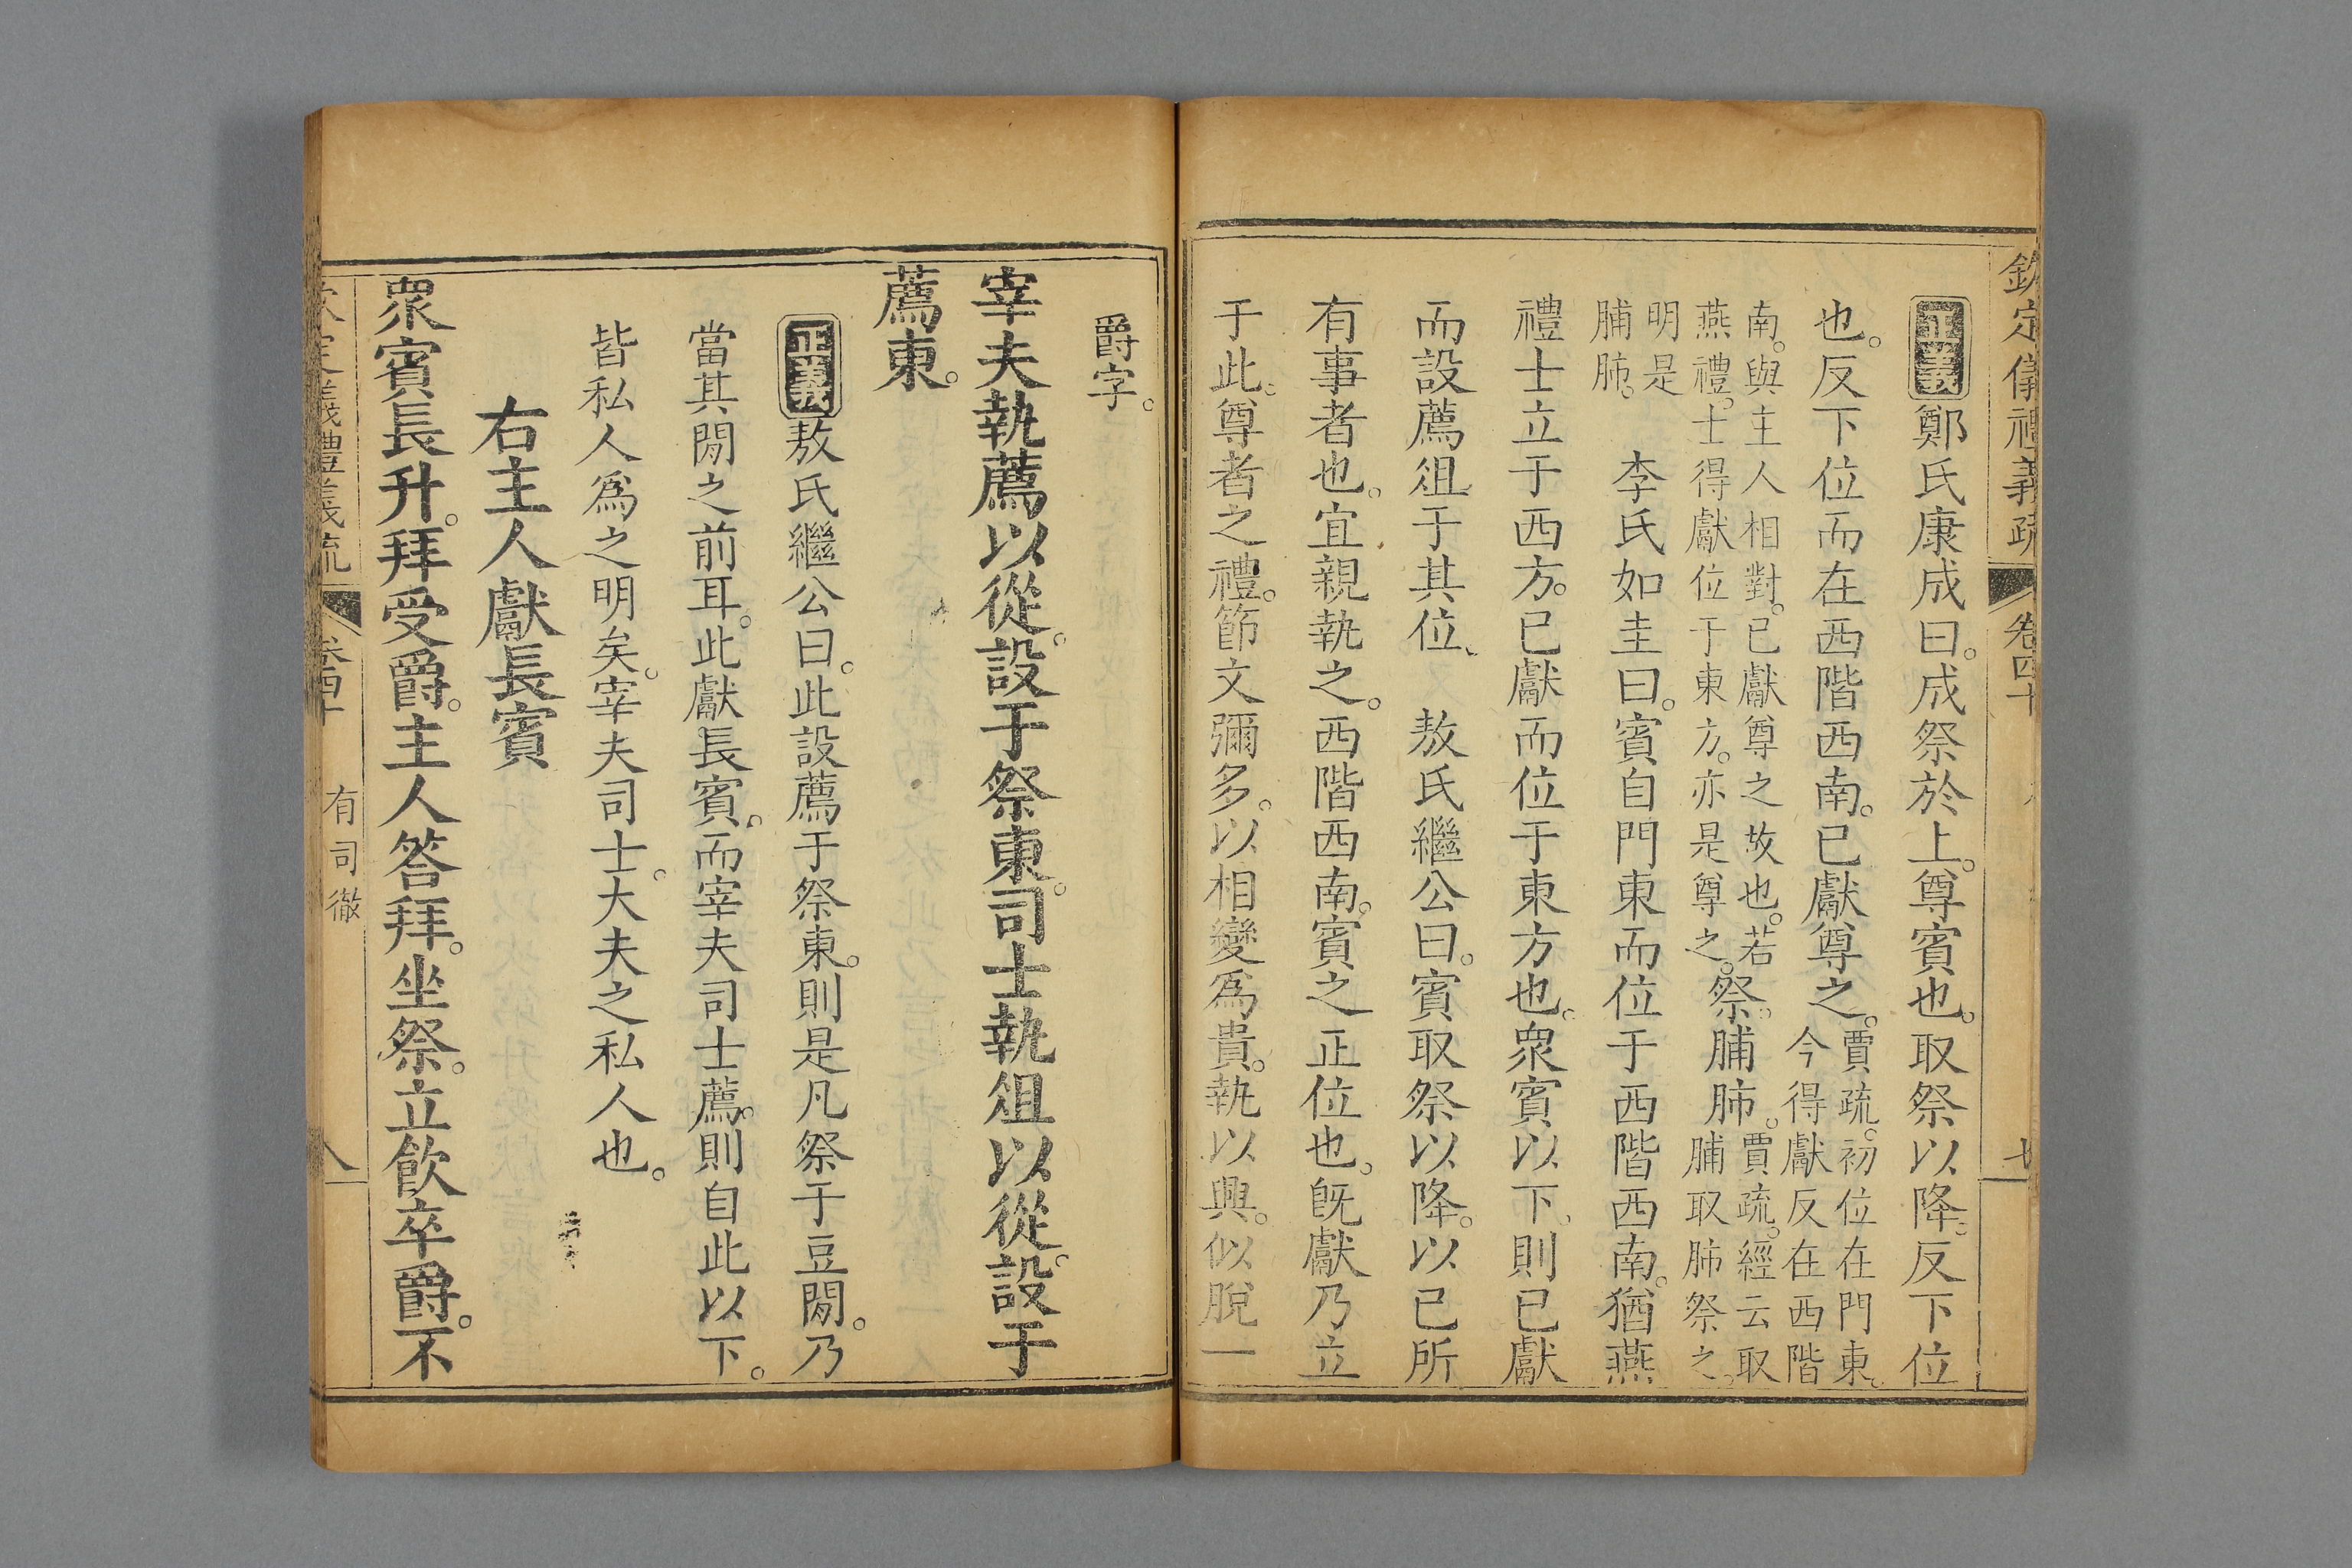 欽定儀禮義疏 卷四十 七
正義鄭氏康成曰。成祭於上。尊賓也。取祭以降。反下位
也。反下位而在西階西南。已獻尊之。賈疏。初位在門東。今得獻反在西階
南。與主人相對。已獻尊之故也。若燕禮。士得獻位于東方。亦是尊之。祭。脯肺。賈疏。經云取脯取肺祭之。
明是脯肺。 李氏如圭曰。賓自門東而位于西階西南。猶燕
禮士立于西方。已獻而位于東方也。衆賓以下。則已獻
而設薦俎于其位。 敖氏繼公曰。賓取祭以降。以已所
有事者也。宜親執之。西階西南。賓之正位也。旣獻乃立
于此。尊者之禮。節文彌多。以相變爲貴。執以興。似脫一
爵字。
宰夫執薦以從。設于祭東。司士執俎以從。設于
薦東。
正義敖氏繼公曰。此設薦于祭東。則是凡祭于豆閒。乃
當其閒之前耳。此獻長賓。而宰夫司士薦。則自此以下。
皆私人爲之明矣。宰夫司士。大夫之私人也。
右主人獻長賓
衆賓長升。拜受爵。主人答拜。坐祭。立飲卒爵。不
欽定儀禮義疏 卷四十 有司徹 八